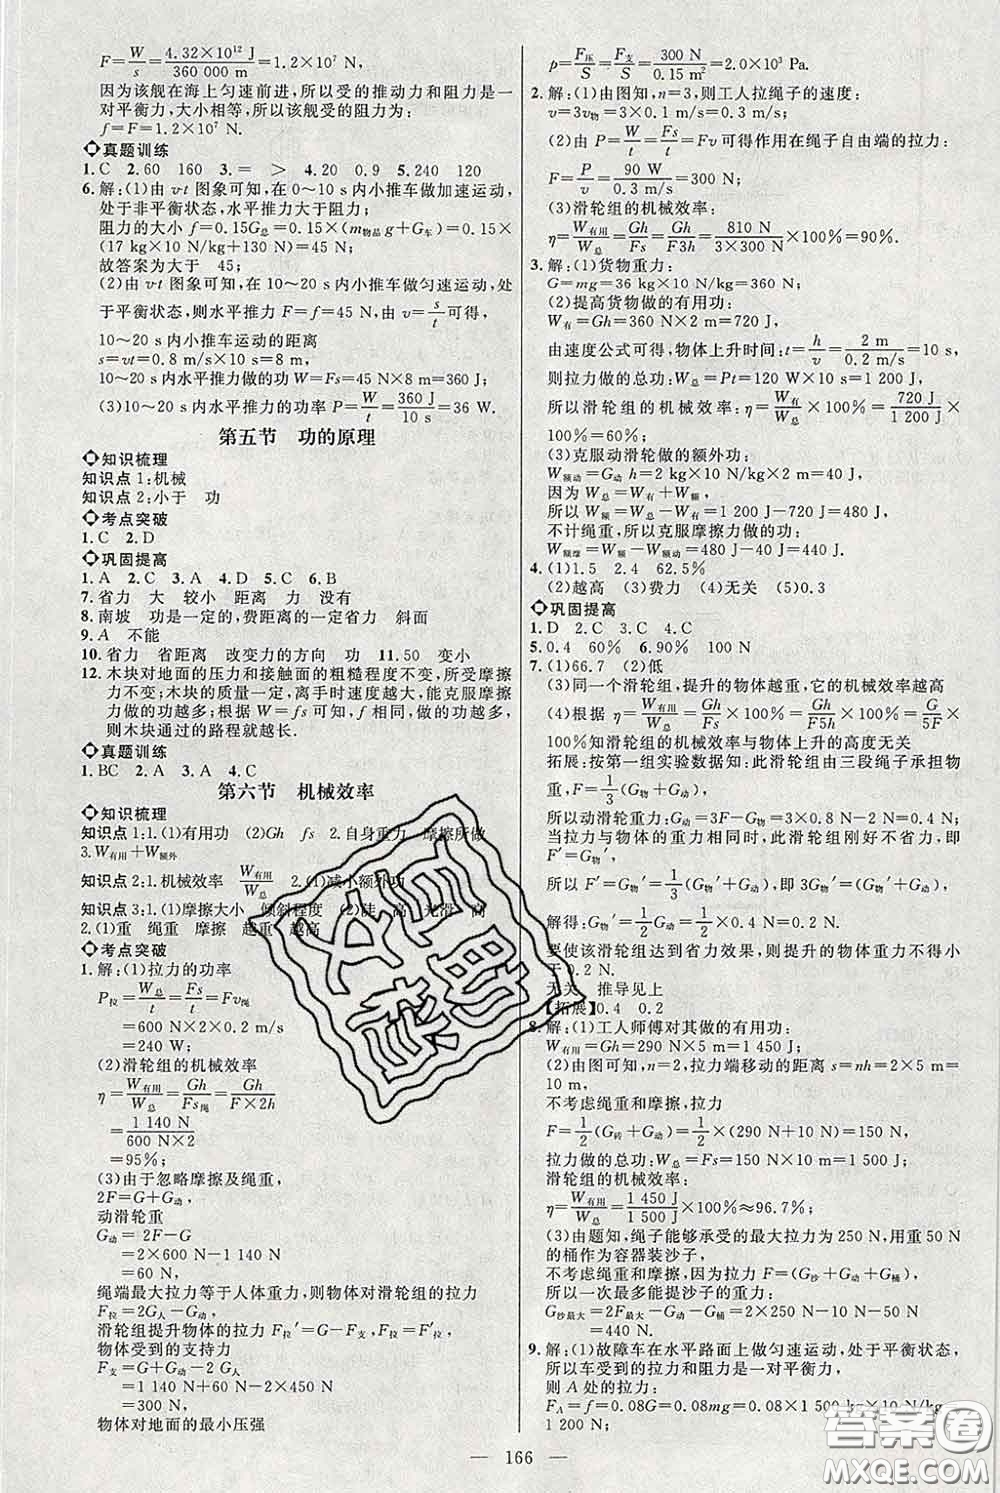 F=W/s=4.32×10¹² J/360 000 m=1.2×10⁷ N,
因为该舰在海上匀速前进,所以受的推动力和阻力是一
对平衡力,大小相等,所以该舰受阻力为:
f=F=1.2×10⁷ N.
真题训练
1.C 2.60 160 3.= > 4.20 0.9 5.240 120
6.解:(1)由 v-t 图象可知,在 0～10 s 内小推车做加速运动,
处于非平衡状态,水平推力大于阻力;
阻力的大小 f=0.15G总=0.15×(m物品g+G车)=0.15×
(17 kg×10 N/kg+130 N)=45 N;
故答案为大于 45;
(2)由 v-t 图象可知,在 10～20 s 内小推车做匀速运动,处
于平衡状态,则水平推力 F=f=45 N,由 v=s/t可得,
10～20 s 内小推车运动的距离
s=vt=0.8 m/s×10 s=8 m,
10～20 s 内水平推力做的功 W=Fs=45 N×8 m=360 J;
(3)10～20 s 内水平推力的功率 P=W/t=360 J/10 s=36 W.
第五节 功的原理
知识梳理
知识点 1:机械
知识点 2:小于 功
考点突破
1.C 2.D
巩固提高
1.A 2.C 3.A 4.D 5.C 6.B
7.省力 大 较小 距离 力 没有
8.南坡 功是一定的,费距离的一定省力 斜面
9.A 不能
10.省力 省距离 改变力的方向 功 11.50 变小
12.木块对地面的压力和接触面的粗糙程度不变,所受摩擦
力不变;木块的质量一定,离手时速度越大,能克服摩擦
力做的功越多;根据 W=fs 可知,f 相同,做的功越多,
则木块通过的路程就越长.
真题训练
1.BC 2.A 3.A 4.C
第六节 机械效率
知识梳理
知识点 1:1.(1)有用功 (2)Gh fs 2.自身重力 摩擦所做
3.W有用+W额外
知识点 2:1.机械效率 W有用/W总 2.(1)减小额外功
知识点 3:1.(1)摩擦大小 倾斜程度 (2)陡 高 光滑 高
2.(1)重 绳重 摩擦 越重 越高
考点突破
1.解:(1)拉力的功率
P拉=W总/t=Fs/t=Fv绳
=600 N×2×0.2 m/s
=240 W;
(2)滑轮组的机械效率
η=W有用/W总=Gh/Fs绳=Gh/F×2h
=1 140 N/600 N×2
=95%;
(3)由于忽略摩擦及绳重;
2F=G+G动
动滑轮重
G动=2F-G
=2×600 N-1 140 N
=60 N,
绳端最大拉力等于人体重力,则物体对滑轮组的拉力
F拉=2G人-G动,
滑轮组提升物体的拉力 F拉'=G-F支,F拉=F'拉,
物体受到的支持力
F支=G+G动-2G人
=1 140 N+60 N-2×450 N
=300 N,
物体对地面的最小压强
p=F压/S=F支/S=300 N/0.15 m²=2.0×10³ Pa.
2.解:(1)由图知,n=3,则工人拉绳子的速度:
v=3v物=3×0.1 m/s=0.3 m/s;
(2)由 P=W/t=Fs/t=Fv 可得作用在绳子自由端的拉力:
F=P/v=90 W/0.3 m/s=300 N;
(3)滑轮组的机械效率:
η=W有用/W总=Gh/Fs=Gh/F3h=810 N/3×300 N×100%=90%.
3.解:(1)货物重力:
G=mg=36 kg×10 N/kg=360 N;
(2)提高货物做的有用功:
W有=Gh=360 N×2 m=720 J,
由速度公式可得,物体上升时间:t=h/v=2 m/0.2 m/s=10 s,
则拉力做的总功:W总=Pt=120 W×10 s=1 200 J,
所以滑轮组的机械效率:η=W有/W总×100%=720 J/1 200 J×
100%=60%;
(3)克服动滑轮做的额外功:
W额动=G动 h=2 kg×10 N/kg×2 m=40 J,
因为 W总=W有+W额,
所以 W额=W总-W有=1 200 J-720 J=480 J,
不计绳重,所以克服摩擦力做的功:
W额摩=W额-W额动=480 J-40 J=440 J.
4.(1)1.5 2.4 62.5%
(2)越高 (3)费力 (4)无关 (5)0.3
巩固提高
1.D 2.C 3.C 4.C
5.0.4 60% 6.90% 100
7.(1)66.7 (2)低
(3)同一个滑轮组,提升的物体越重,它的机械效率越高
(4)根据 η=W有用/W总=Gh/Fs×100%=Gh/F5h×100%=G/5F×
100%知滑轮组的机械效率与物体上升的高度无关
拓展:按第一组实验数据知:此滑轮组由三段绳子承担物
重,F=1/3(G物+G动),
所以动滑轮重力:G动=3F-G物=3×0.8 N-2 N=0.4 N;
当拉力与物体的重力相同时,此滑轮组刚好不省力,即
F'=G物',
所以 F'=G物'=1/3(G物'+G动),即 3G物'=G物'+G动,
解得:G物'=1/2G动=1/2×0.4 N=0.2 N.
要使该滑轮组达到省力效果,则提升的物体重力不得小
于 0.2 N.
无关 推导见上
【拓展】0.4 0.2
8.解:(1)工人师傅对其做的有用功:
W有用=Gh=290 N×5 m=1 450 J;
(2)由图可知,n=2,拉力端移动的距离 s=nh=2×5 m=
10 m,
不考虑绳重和摩擦,拉力
F=1/2(G砖+G动)=1/2×(290 N+10 N)=150 N,
拉力做的总功:W总=Fs=150 N×10 m=1 500 J;
滑轮组的机械效率:
η=W有用/W总=1 450 J/1 500 J×100%≈96.7%;
(3)由题知,绳子能够承受的最大拉力为 250 N,用重 50 N
的桶作为容器装沙子,
不考虑绳重和摩擦,因为拉力 F=(G沙+G动+G桶),
所以一次最多能提沙子的重力:
G沙最大=2F最大-G动-G桶=2×250 N-10 N-50 N
=440 N.
9.解:(1)故障车在水平路面上做匀速运动,处于平衡状态,
所以车受到的拉力和阻力是一对平衡力,
则 A 处的拉力:
FA=f=0.08G=0.08mg=0.08×1 500 kg×10 N/kg=
1 200 N;
— 166 —
答案圈
MXQE.COM